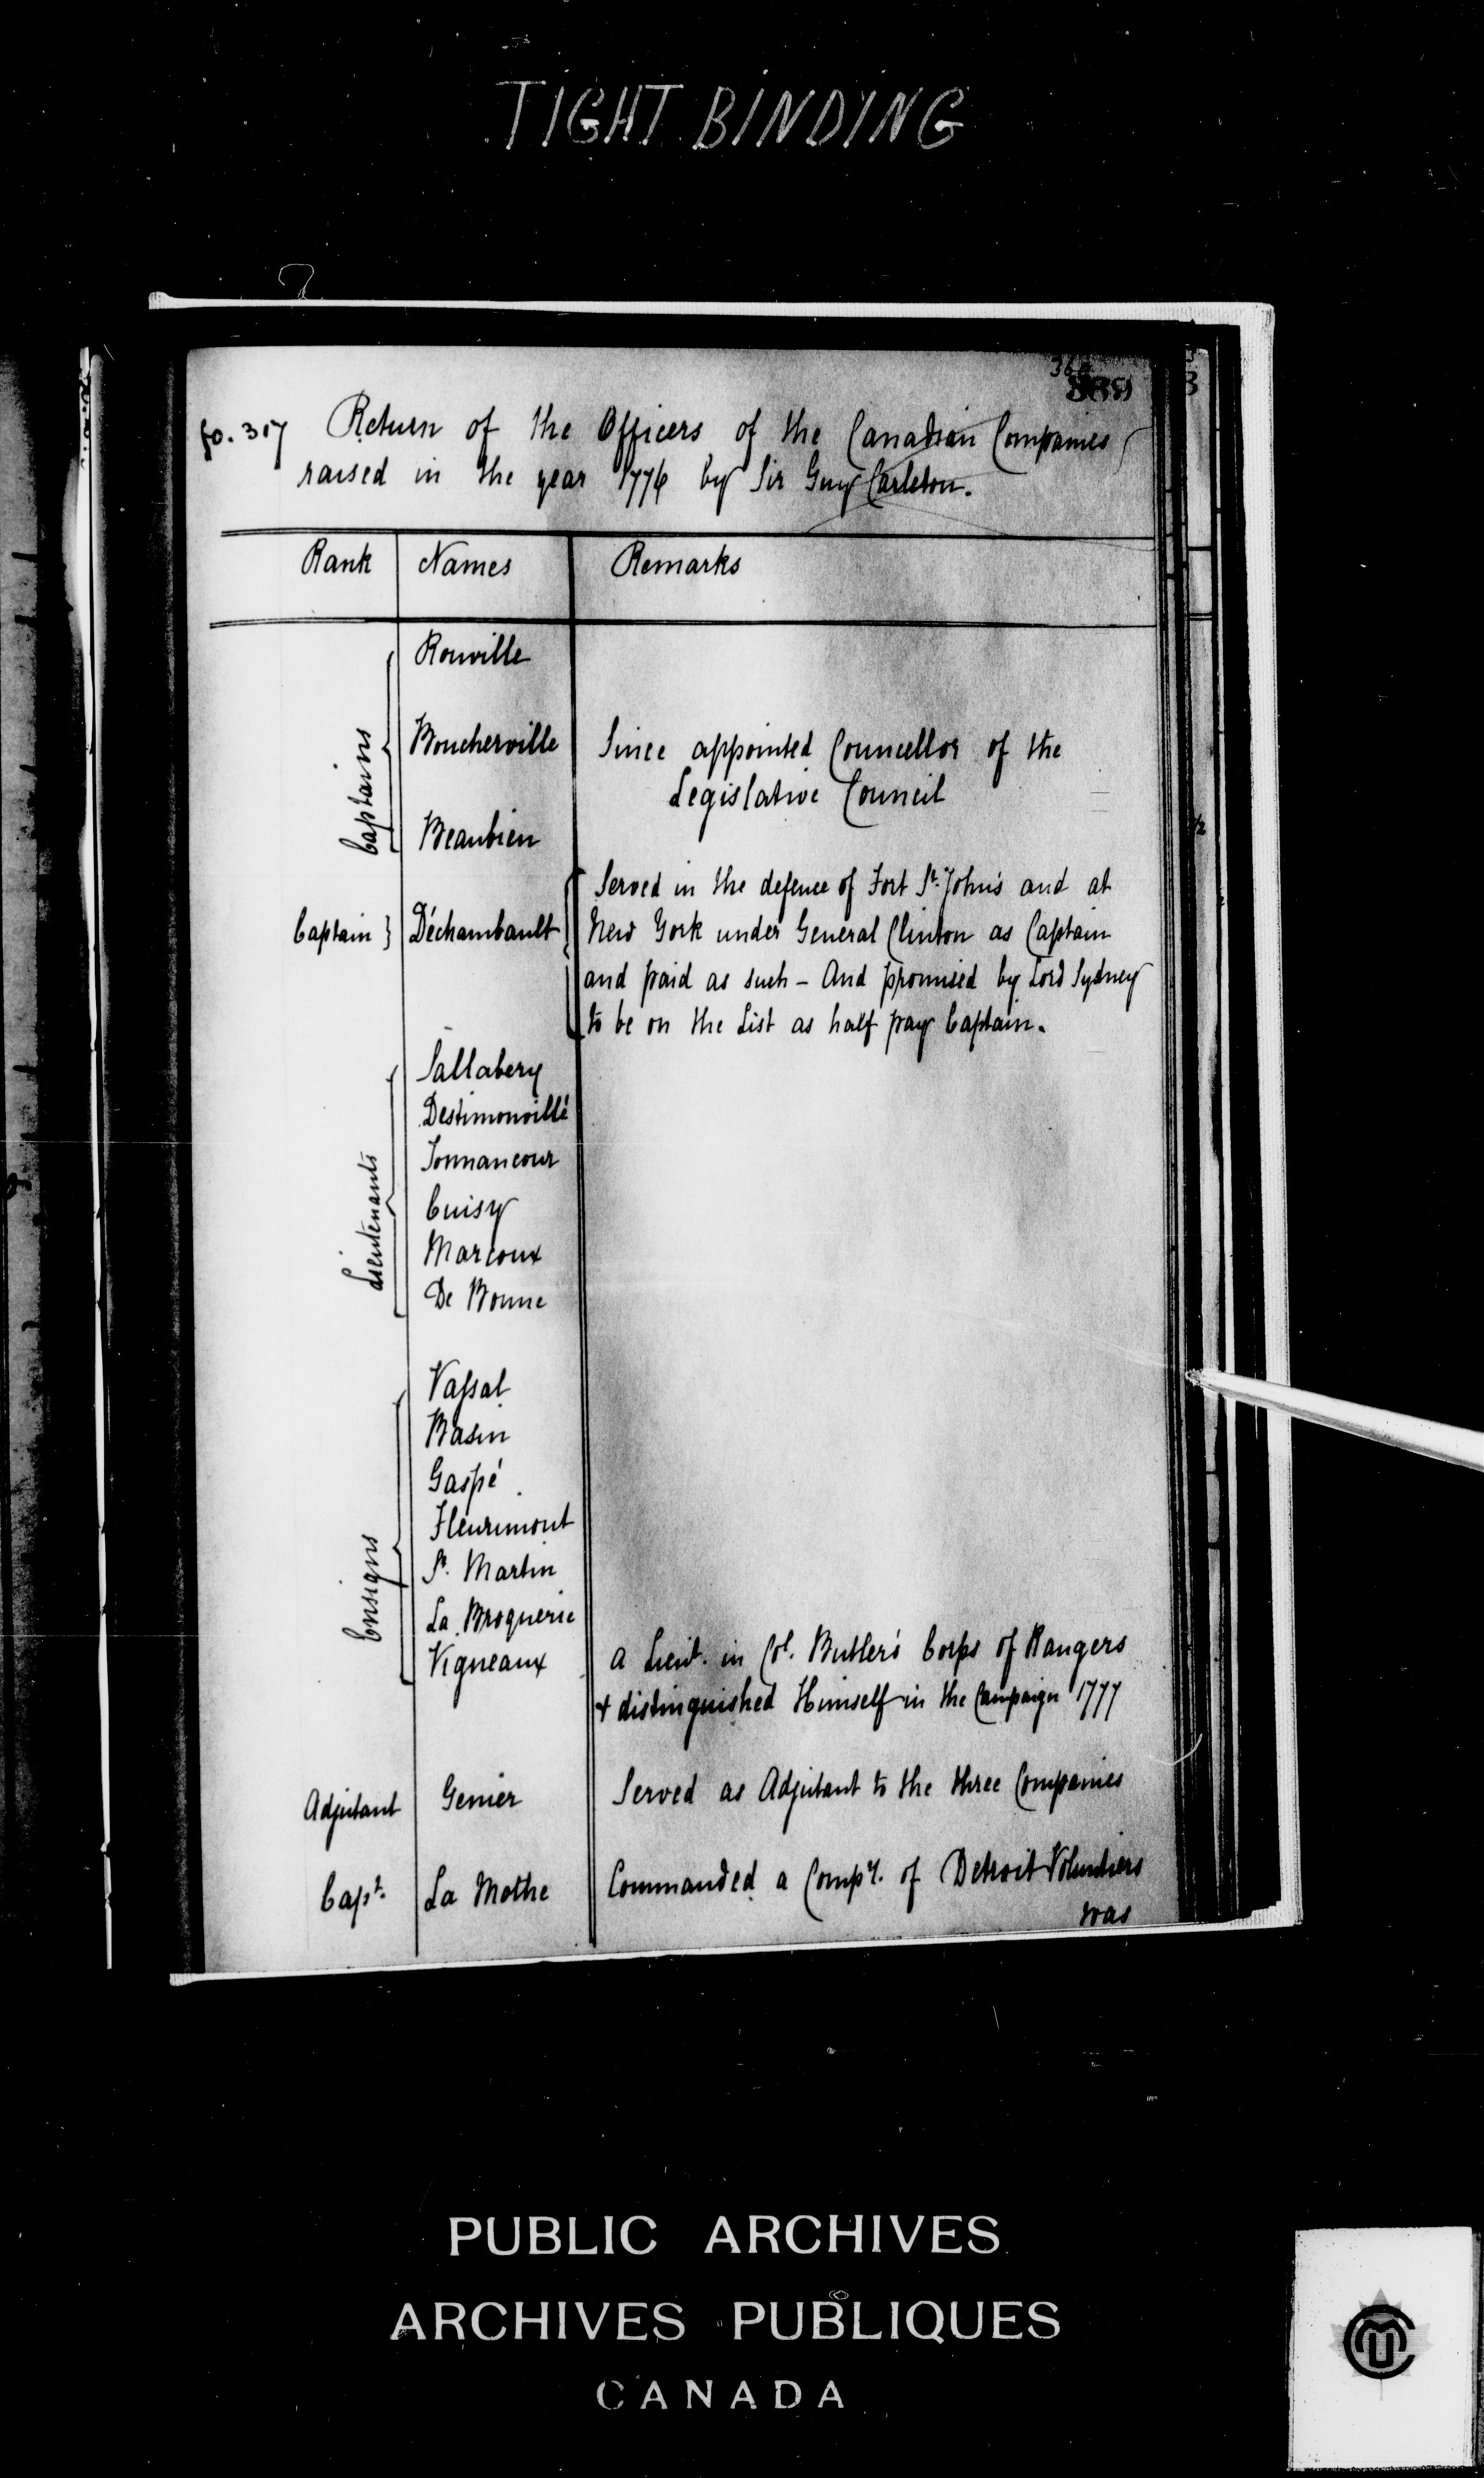 TIGHT BINDING
fo. 317 Return of the Officers of the Canadian Companies
raised in the year 1776 by Sir Guy Carleton.
Rank Names Remarks
Captains
Rouville
Boucherville Since appointed Councellor of the
Legislative Council
Beaubien
Captain } Déchambault Served in the defence of Fort St. John's and at
New York under General Clinton as Captain
and paid as such - And promised by Lord Sydney
to be on the List as half pay Captain.
Lieutenants
Sallabery
Destimonvillé
Tonnancour
Cuisy
Marcoux
De Bonne
Ensigns
Vassal
Basin
Gaspé
Fleurimont
St. Martin
La Broquerie
Vigneaux a Lieut. in Col. Butler's Corps of Rangers
& distinguished Himself in the Campaign 1777
Adjutant Genier Served as Adjutant to the three Companies
Capt. La Mothe Commanded a Compy. of Detroit Volunteers
was
PUBLIC ARCHIVES
ARCHIVES PUBLIQUES
CANADA